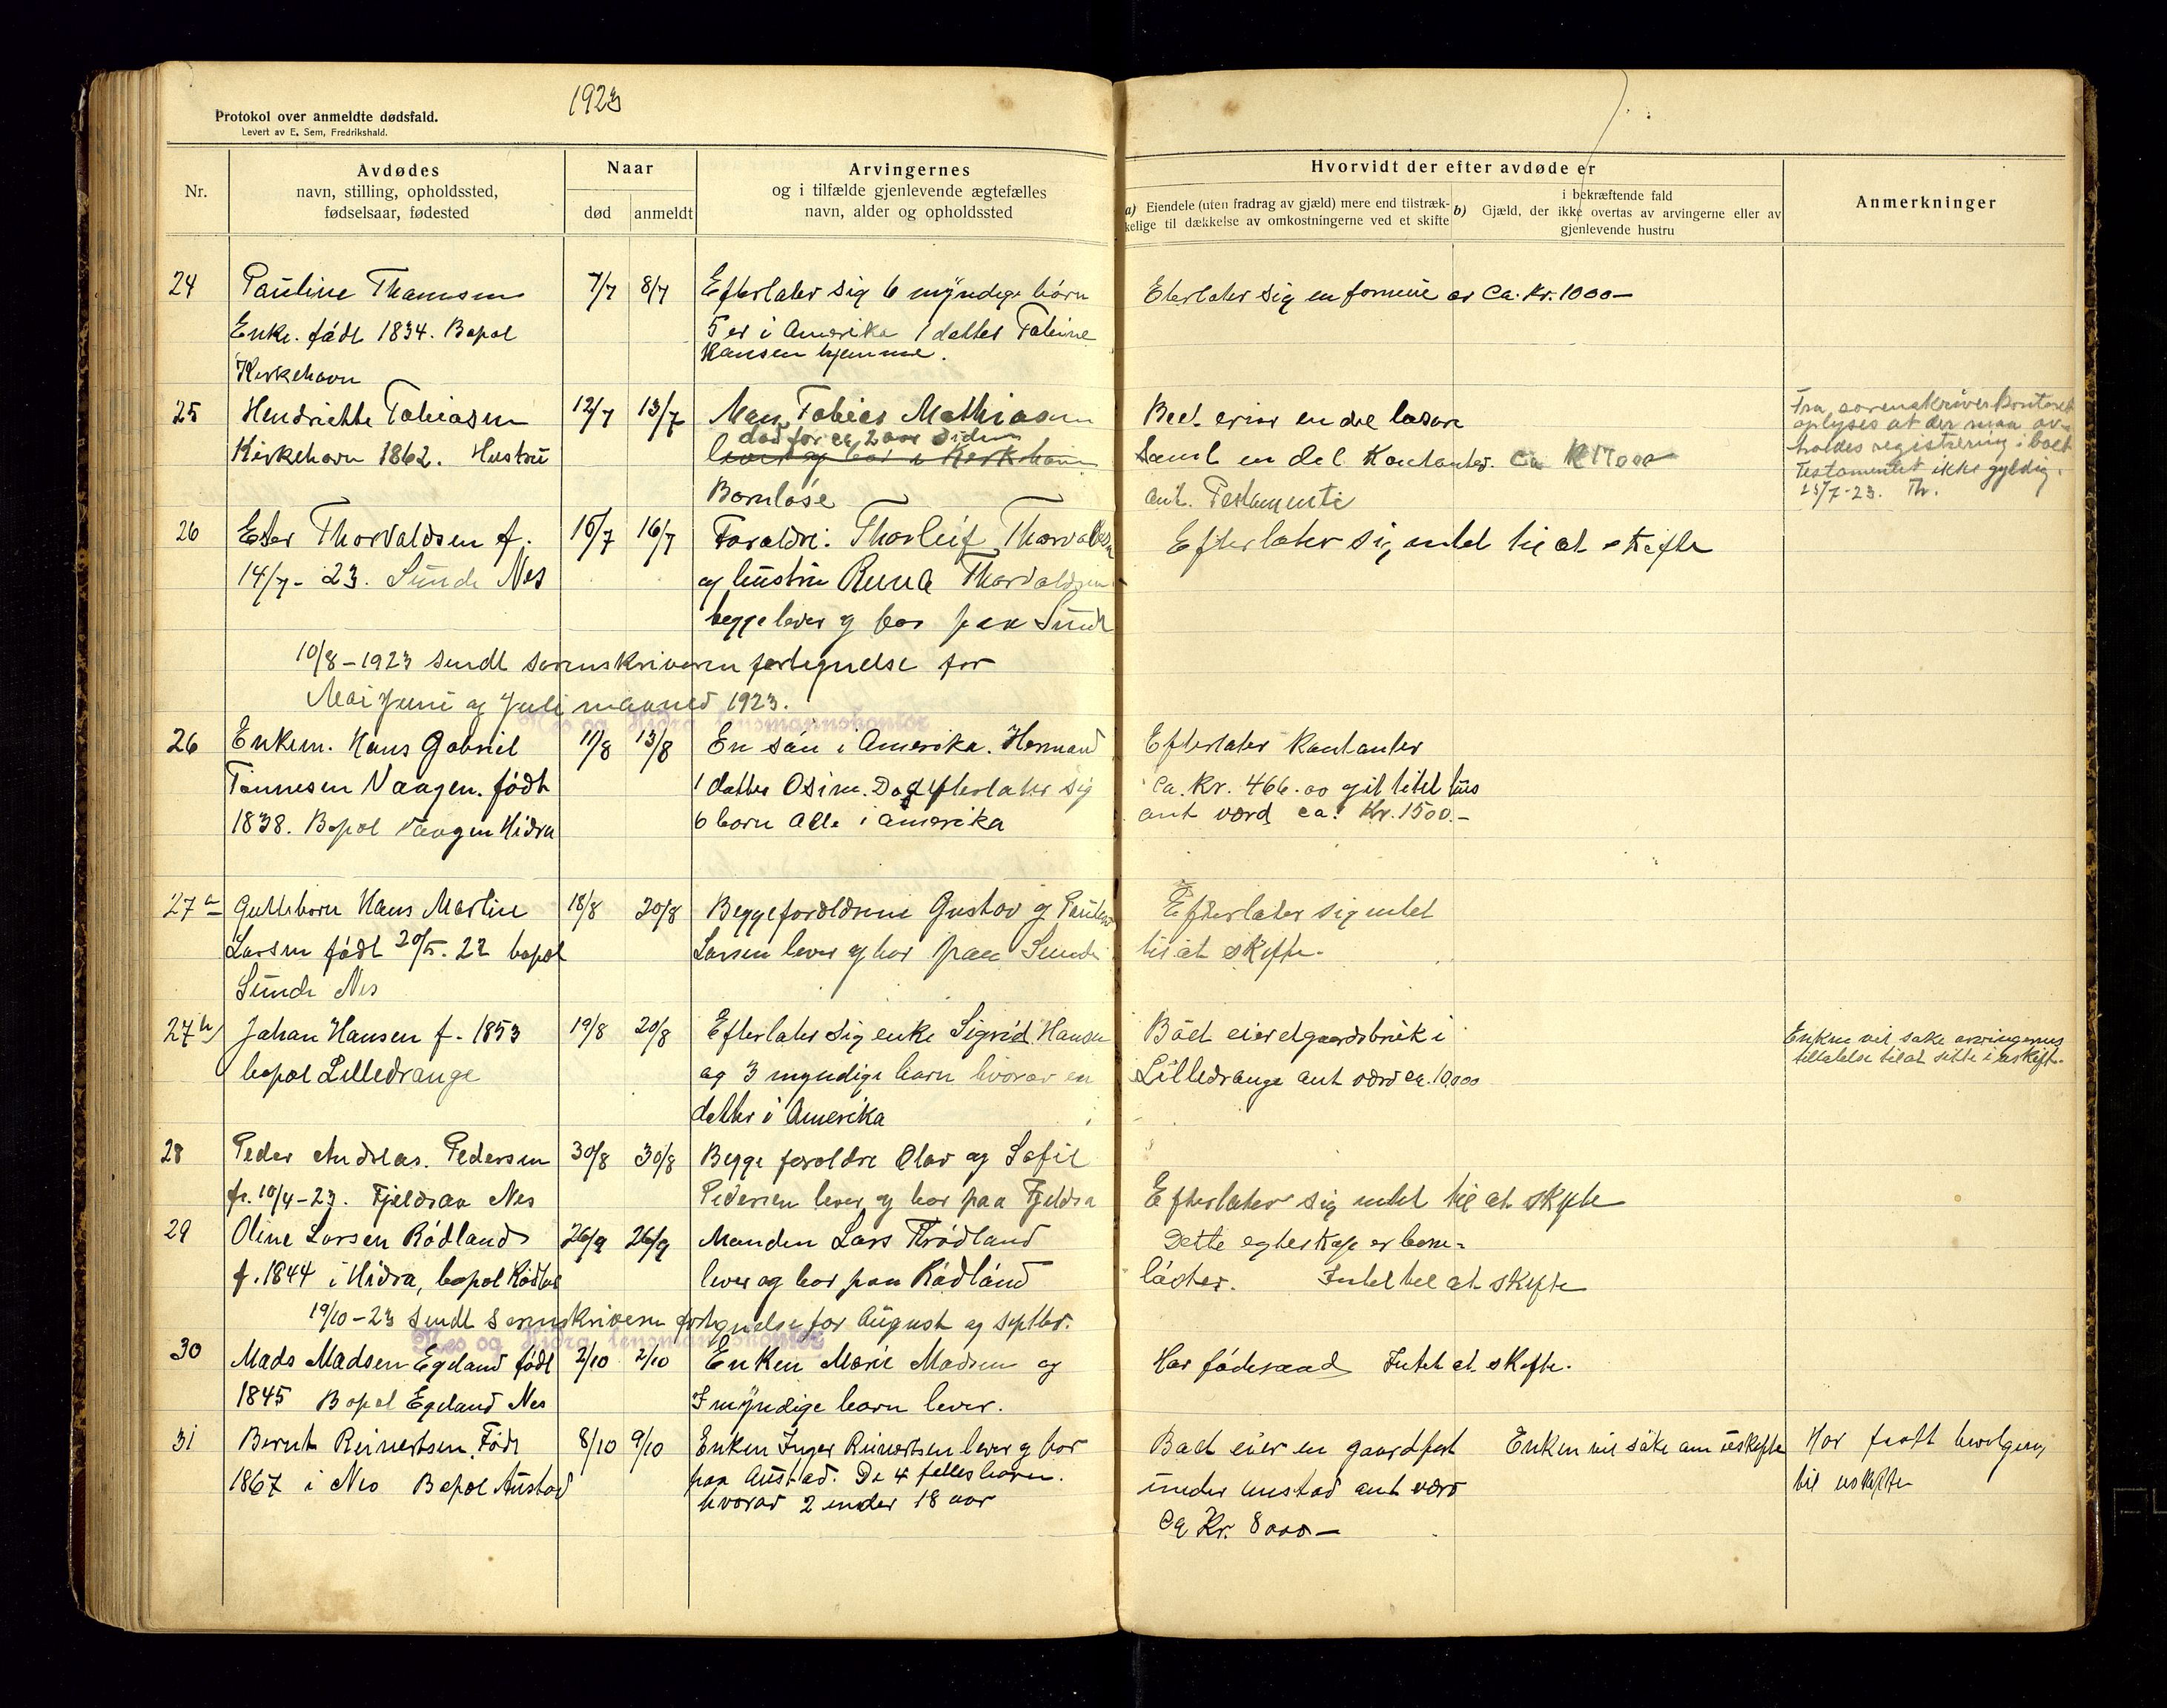 1923
Protokol over anmeldte dødsfald.
Levert av E. Sem, Fredrikshald.
Nr.
Avdødes
navn, stilling, opholdssted,
fødselsaar, fødested
Naar
død
anmeldt
Arvingernes
og i tilfælde gjenlevende ægtefælles
navn, alder og opholdssted
Hvorvidt der efter avdøde er
a) Eiendele (uten fradrag av gjæld) mere end tilstræk-
kelige til dækkelse av omkostningerne ved et skifte
i bekræftende fald
b) Gjæld, der ikke overtas av arvingerne eller av
gjenlevende hustru
Anmerkninger
24 Pauline Thomsen 7/7 8/7 Efterlater sig 6 myndige börn Eterlater sig en formue av Ca. Kr. 1000-
Enke. född 1834. Bopæl 5 er i Amerika 1 datter Tobine
Hansen hjemme.
Kirkehavn
25 Hendrikke Tobiasen 12/7 13/7 Man Tobias Mathiasen Boet eier en del lösöre
död for ca 2 aar siden
Kirkehavn 1862. Hustru lever og bor i Kirkehavn Samt en del Kontanter. Ca
Barnlöse ant. Testamente
Fra sorenskriverkontoret
oplyses at der maa av-
holdes registrering i boet
Testamentet ikke gyldig.
25/7-23. Th.
26 Ester Thorvaldsen f. 15/7 16/7 Forældre: Thorleif Thorvaldsen Efterlater sig intet til at skifte
14/7-23. Sunde Nes og hustru Thorvaldsen
begge lever og bor paa Sunde
10/8-1923 sendt sorenskriveren fortegnelse for
Mai Juni og Juli maaned 1923.
Nes og Hidra lensmannskontor
26 Enkem. Hans Gabriel 11/8 13/8 En sön i Amerika. Herman Efterlater kontanter
Tönnesen Vaagen. födt 1 datter Osine. Död efterlater sig Ca. Kr. 466.00 og et litet hus
1838. Bopæl Vaagen Hidra 6 born Alle i Amerika ant værd ca. Kr. 1500.-
27 a Guttebarn Hans Martin 18/8 20/8 Begge forældrene Gustav og Efterlater sig intet
Larsen födt 20/5.22 bopæl Larsen lever og bor paa Sunde til at skifte.
Sunde Nes
27 b Johan Hansen f. 1853 19/8 20/8 Efterlater sig enke Sigrid Hansen Boet eier et gaardsbruk i
bopæl Lilledrange og 3 myndige barn hvorav en Lilledrange ant værd ca. 10,000
datter i Amerika
Enken vil söke arvingernes
tillatelse til at sitte i uskifte.
28 Peder Andreas. Pedersen 30/8 30/8 Begge foreldre Olav og Sofie
f. 10/4-23. Fjeldsaa Nes Pedersen lever og bor paa Fjeldsa Efterlater sig intet til at skifte
29 Oline Larsen Rödland 26/9 26/9 Manden Lars Rödland Dette egteskap er barn-
f. 1844 i Hidra, bopæl Rödland lever og bor paa Rödland löst. Intet til at skifte
19/10-23 sendt Sorenskriveren fortegnelse for August og septbr.
Nes og Hidra lensmannskontor
30 Mads Madsen Egeland födt 2/10 2/10 Enken Marie Madsen og Har föderaad Intet at skifte.
1845 Bopæl Egeland Nes 7 myndige barn lever.
31 Bernt Reinertsen. Född 8/10 9/10 Enken Inger Reinertsen lever og bor Boet eier en gaardpart Enken vil söke om uskifte Har faatt bevilgning
1867 i Nes Bopæl Austad paa Austad. De 4 felles barn. under Austad ant værd til uskifte
hvorav 2 under 18 aar
Ca Kr. 8000-